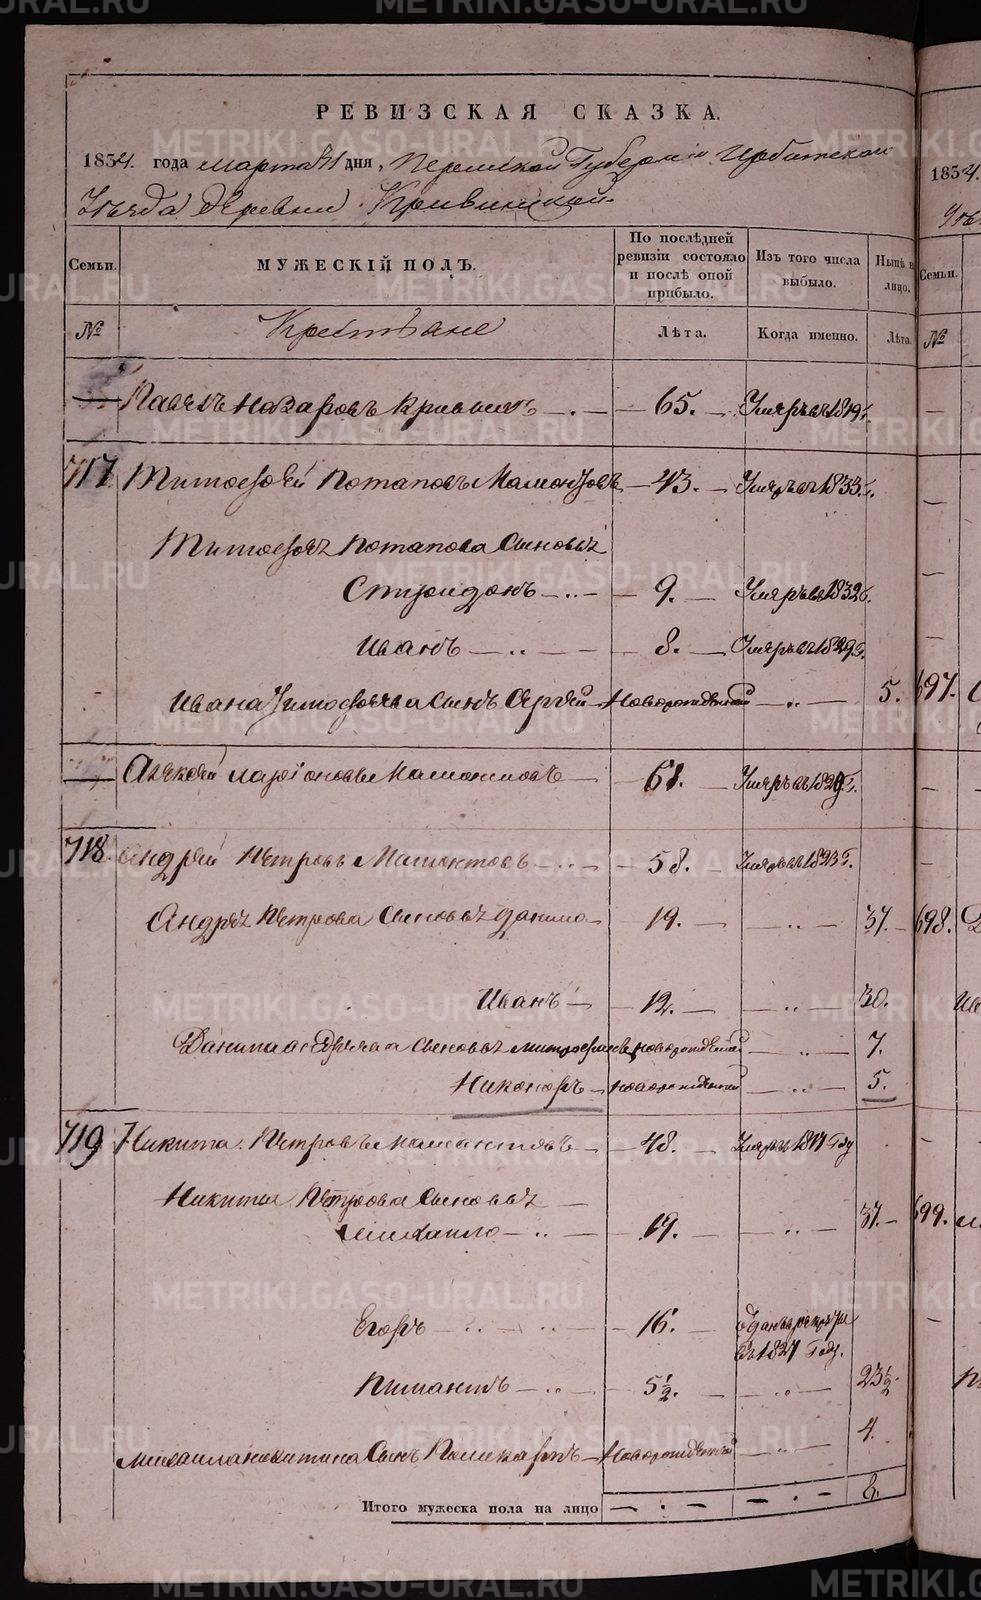 РЕВИЗСКАЯ СКАЗКА.
1834. года марта 21 дня, Пермской Губернии Ирбитскаго
Уѣзда деревни Кривинской.
Семьи. МУЖЕСКІЙ ПОЛЪ. По послѣдней ревизіи состояло и послѣ оной прибыло. Изъ того числа выбыло. Нынѣ на лицо.
№ Крестьяне Лѣта. Когда именно. Лѣта.
Павелъ Назаровъ Кривыхъ 65. Умеръ въ 1819 г.
717 Тимофей Потаповъ Мамонтовъ 43. Умеръ въ 1833 г.
Тимофея Потапова Сыновья
Спиридонъ 9. Умеръ въ 1832 г.
Иванъ 8. Умеръ въ 1829 г.
Ивана Тимофеева Сынъ Сергѣй Новорожденный 5.
Алексѣй Ларіоновъ Мамонтовъ 61. Умеръ въ 1829 г.
718. Андрей Петровъ Мамонтовъ 58. Умеръ въ 1823 г.
Андрея Петрова Сыновья Данило 19. 37.
Иванъ 12. 30.
Данила Андреева Сыновья Митрофанъ новорожденный 7.
Никоноръ новорожденный 5.
719 Никита Петровъ Мамонтовъ 48. Умеръ 1817 Году
Никиты Петрова Сыновья
Михайло 19. 37.
Егоръ 16. Отданъ въ рекруты
въ 1827 Году.
Пиманъ 5 1/2. 23 1/2.
Михаила Никитина Сынъ Поликарпъ Новорожденный 4.
Итого мужеска пола на лицо 8.
1834.
Семьи.
№
697.
698.
699.
METRIKI.GASO-URAL.RU